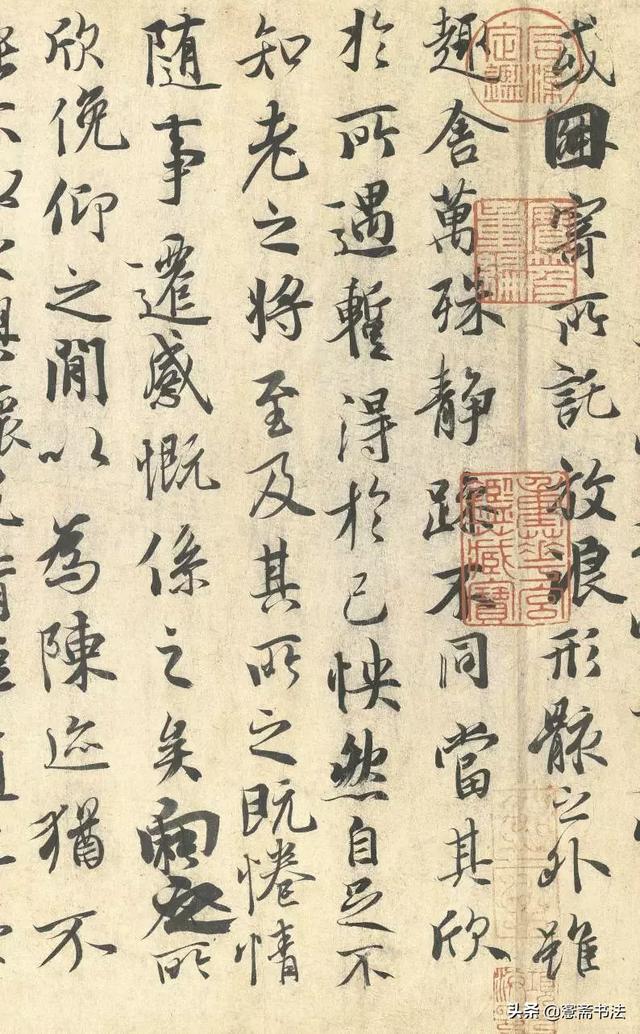 或因寄所託放浪形骸之外雖
趣舍萬殊靜躁不同當其欣
於所遇暫得於己怏然自足不
知老之將至及其所之既惓情
隨事遷感慨係之矣向之所
欣俛仰之閒以為陳迹猶不
石渠定鑑
寶笈重編
重華宮鑑藏寶
头条 @愙斋书法